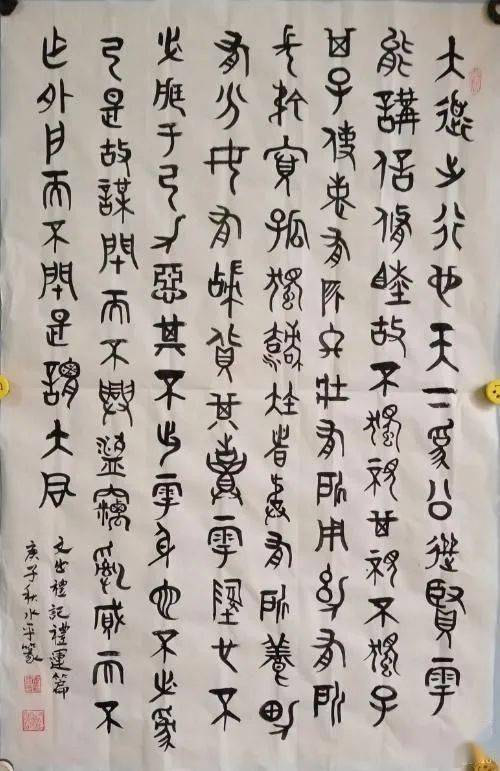 大道之行也天下為公選賢與
能講信修睦故不獨親其親不獨子
其子使老有所終壯有所用幼有所
長矜寡孤獨廢疾者皆有所養男
有分女有歸貨其棄於地也不
必藏于己力惡其不出於身也不必為
己是故謀閉而不興盜竊亂賊而不
作外戶而不閉是謂大同
文出禮記禮運篇
庚子秋水平篆